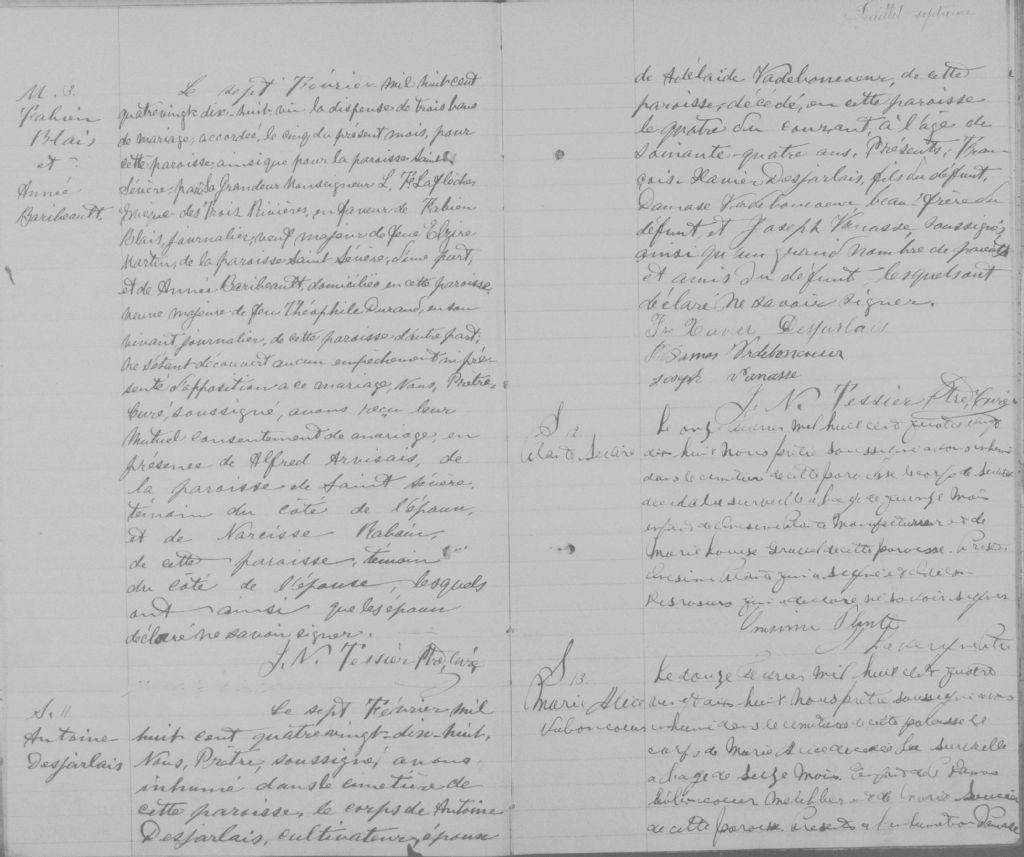 M. 3.
Fabien
Blais
et
Année
Baribeault.
Le sept Février mil huit cent
quatrevingt-dix-huit, vu la dispense de trois bans
de mariage, accordée, le cinq du présent mois, pour
cette paroisse, ainsi que pour la paroisse Saint
Sévère, par Sa Grandeur Monseigneur L. F. Laflèche
Evêque des Trois Rivières, en faveur de Fabien
Blais, journalier, veuf majeur de feue
Martin, de la paroisse Saint Sévère, d'une part,
et de Année Baribeault, domiciliée en cette paroisse,
veuve majeure de feu Théophile Durand, en son
vivant journalier, de cette paroisse d'autre part;
ne s'étant découvert aucun empêchement ni pré-
senté d'opposition à ce mariage, Nous, Prêtre
Curé, soussigné, avons reçu leur
mutuel consentement de mariage, en
présence de Alfred Arvisais, de
la paroisse de Saint Sévère,
témoin du côté de l'époux,
et de Narcisse
de cette paroisse, témoin
du côté de l'épouse, lesquels
ont ainsi que les époux
déclaré ne savoir signer.
J. N. Tessier Ptre, Curé
S. 11
Antoine
Desjarlais
Le sept Février mil
huit cent quatrevingt-dix-huit,
Nous, Prêtre, soussigné, avons
inhumé dans le cimetière de
cette paroisse, le corps de Antoine
Desjarlais, cultivateur, époux
Feuillet septième
de Adélaïde Vadeboncoeur, de cette
paroisse, décédé, en cette paroisse
le quatre du courant, à l'âge de
soixante-quatre ans. Présents: Fran-
çois-Xavier Desjarlais, fils du défunt,
Damase Vadeboncoeur beau-frère du
défunt et Joseph Vanasse, soussignés
ainsi qu'un grand nombre de parents
et amis du défunt, lesquels ont
déclaré ne savoir signer.
Fr Xavier Desjarlais
Damas Vadeboncoeur
Joseph Vanasse
J. N. Tessier Ptre, Curé
S 12
Le onze fevrier mil huit cent quatre vingt
dix huit Nous prêtre soussigné avons inhumé
dans le cimetière de cette paroisse le corps de
decedé la surveille a l'age de quinze mois
enfant de Manufacturier et de
Marie Louise de cette paroisse. Presents
qui a signé et
qui a declaré ne savoir signer
Plante
Ptre
S 13
Marie Alice
Vaboncoeur
Le douze fevrier mil huit cent quatre
vingt dix huit Nous prêtre soussigné avons
inhumé dans le cimetière de cette paroisse le
corps de Marie Alice decedée la surveille
a l'age de seize mois Enfant de Damas
et de Marie
de cette paroisse. Presents a l'inhumation Damase